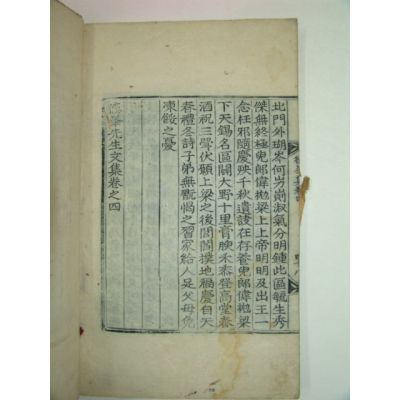 北門外瑚岑何岧崱淑氣分明鍾此區毓生秀
傑無終極兒郎偉抛梁上上帝明明及出王一
念枉邪隨慶殃千秋遺誡在存養兒郎偉抛梁
下天錫名區開大野十里膏腴禾黍登高堂春
酒祝三聲伏願上梁之後閭閻撲地福慶自天
春禮冬詩子弟無斁惰之習家給人足父母免
凍餒之憂
先生文集卷之四